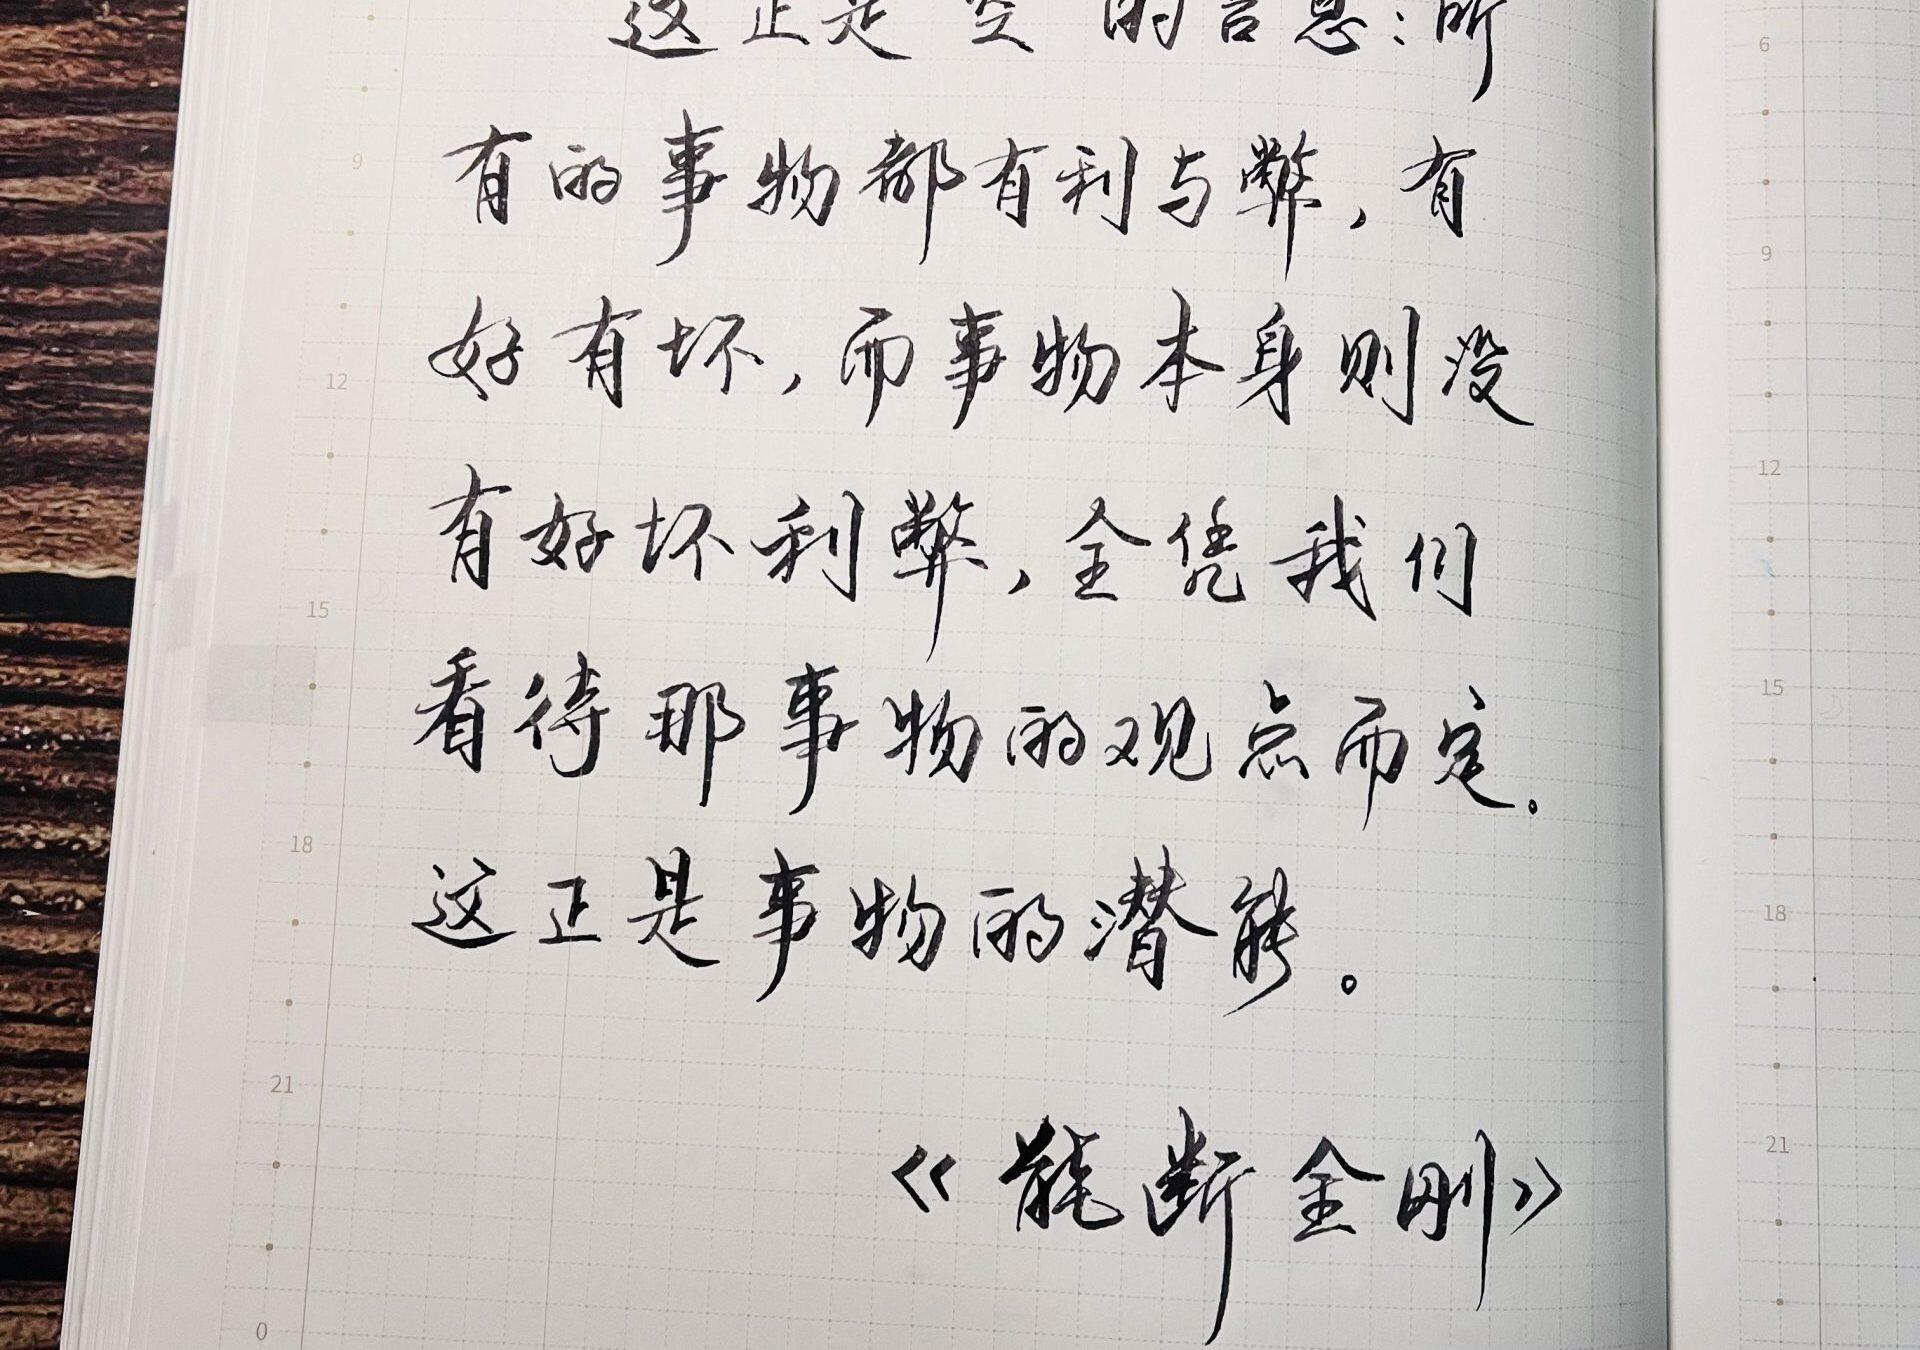 这正是"空"的含意：所
有的事物都有利与弊，有
好有坏，而事物本身则没
有好坏利弊，全凭我们
看待那事物的观点而定。
这正是事物的潜能。
《能断金刚》
9
12
15
18
21
0
6
9
12
15
18
21